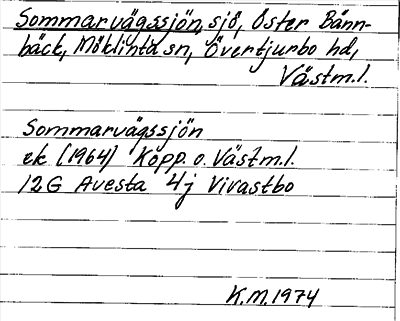 Sommarvägssjön, sjö, Öster Bänn-
bäck, Möklinta sn, Övertjurbo hd,
Västm.l.
Sommarvägssjön
ek (1964) Kopp. o. Västm.l.
12G Avesta 4j Vivastbo
K.M.1974